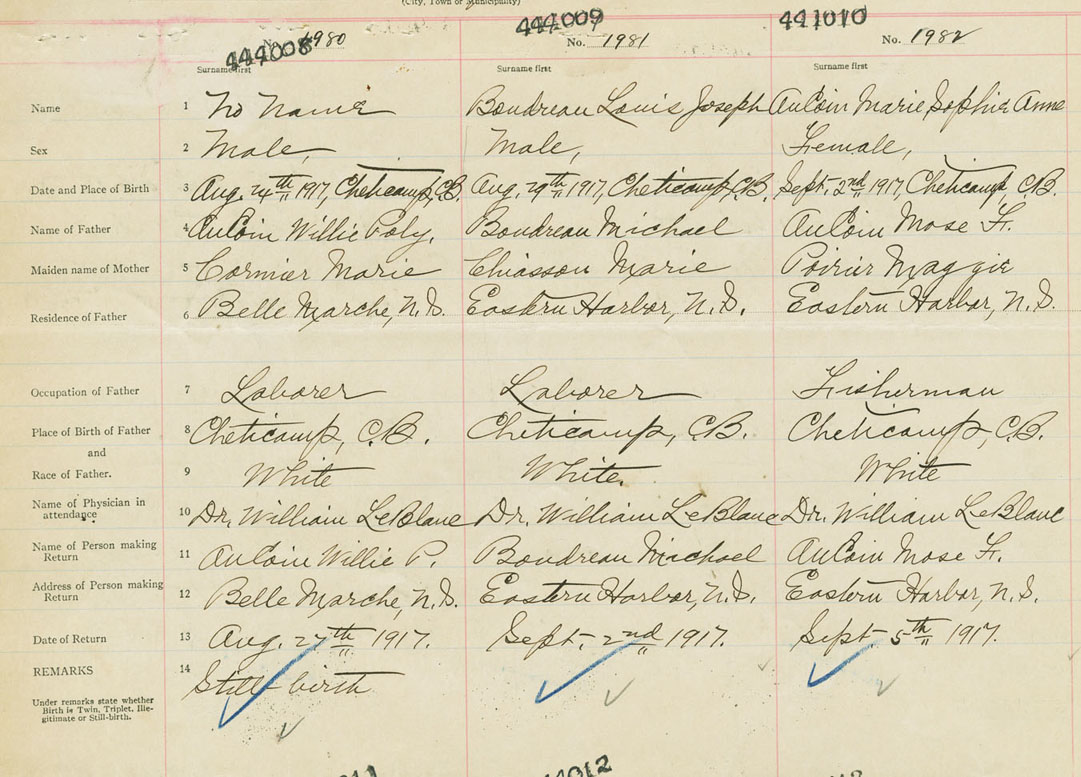 (City, Town or Municipality)
444008 444009 441010
No. 1980 No. 1981 No. 1982
Surname first Surname first Surname first
Name 1 No Name Boudreau Louis Joseph AuCoin Marie Sophie Anne
Sex 2 Male, Male, Female,
Date and Place of Birth 3 Aug. 24th 1917, Cheticamp, C.B. Aug. 29th 1917, Cheticamp, C.B. Sept. 2nd 1917, Cheticamp, C.B.
Name of Father 4 AuCoin Willie Poly. Boudreau Michael AuCoin Mose F.
Maiden name of Mother 5 Cormier Marie Chiasson Marie Poirier Maggie
Residence of Father 6 Belle Marche, N.S. Eastern Harbor, N.S. Eastern Harbor, N.S.
Occupation of Father 7 Laborer Laborer Fisherman
Place of Birth of Father 8 Cheticamp, C.B. Cheticamp, C.B. Cheticamp, C.B.
and
Race of Father. 9 White White. White
Name of Physician in
attendance 10 Dr. William LeBlanc Dr. William LeBlanc Dr. William LeBlanc
Name of Person making
Return 11 AuCoin Willie P. Boudreau Michael AuCoin Mose F.
Address of Person making
Return 12 Belle Marche, N.S. Eastern Harbor, N.S. Eastern Harbor, N.S.
Date of Return 13 Aug. 27th 1917. Sept. 2nd 1917. Sept 5th 1917.
REMARKS 14 Still-birth
Under remarks state whether
Birth is Twin, Triplet, Ille-
gitimate or Still-birth.